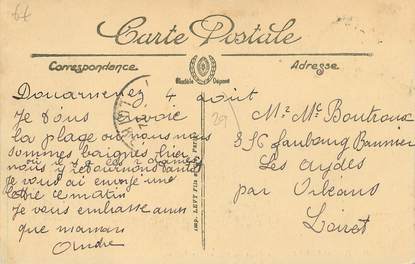 64
Carte Postale
Correspondance
Adresse
Modèle Déposé
Douarnenez 4 août
Je vous envoie
la plage où nous nous
sommes baignés hier
nous y retournons tantôt
je vous ai envoyé une
lettre ce matin
Je vous embrasse ainsi
que maman
André
Imp. LEVY Fils
29
Mr Me Boutroux
856 faubourg Bannier
Les aydes
par Orléans
Loiret